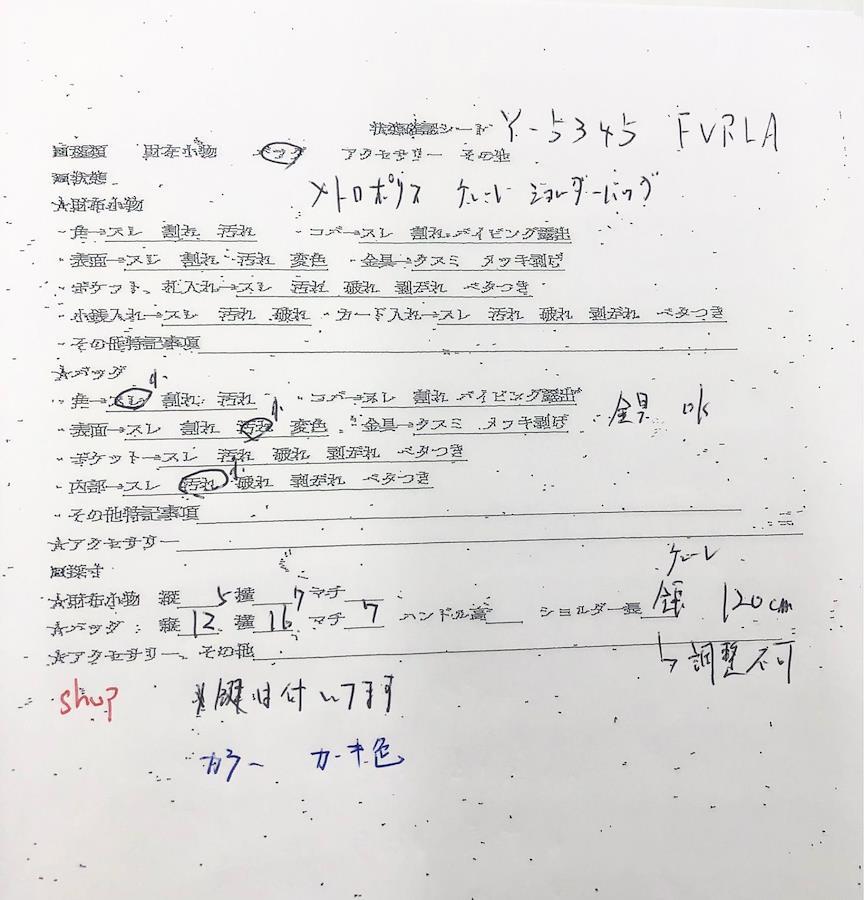 状態確認シート Y-5345 FURLA
■種類 財布小物 バッグ アクセサリー その他
■状態 メトロポリス ケーレ ショルダーバッグ
★財布小物
・角→スレ 割れ 汚れ ・コバ→スレ 割れ パイピング露出
・表面→スレ 割れ 汚れ 変色 ・金具→クスミ メッキ剥げ
・ポケット、札入れ→スレ 汚れ 破れ 剥がれ ベタつき
・小銭入れ→スレ 汚れ 破れ ・カード入れ→スレ 汚れ 破れ 剥がれ ベタつき
・その他特記事項
★バッグ
小
・角→スレ 割れ 汚れ ・コバ→スレ 割れ パイピング露出 金具 ok
小
・表面→スレ 割れ 汚れ 変色 ・金具→クスミ メッキ剥げ
・ポケット→スレ 汚れ 破れ 剥がれ ベタつき
小
・内部→スレ 汚れ 破れ 剥がれ ベタつき
・その他特記事項
★アクセサリー
■採寸 ケーレ
★財布小物 縦 5 横 7 マチ
★バッグ 縦 12 横 16 マチ 7 ハンドル高 ショルダー長 120cm
★アクセサリー、その他 ↳調整不可
shop ※鍵は付いてます
カラー カーキ色